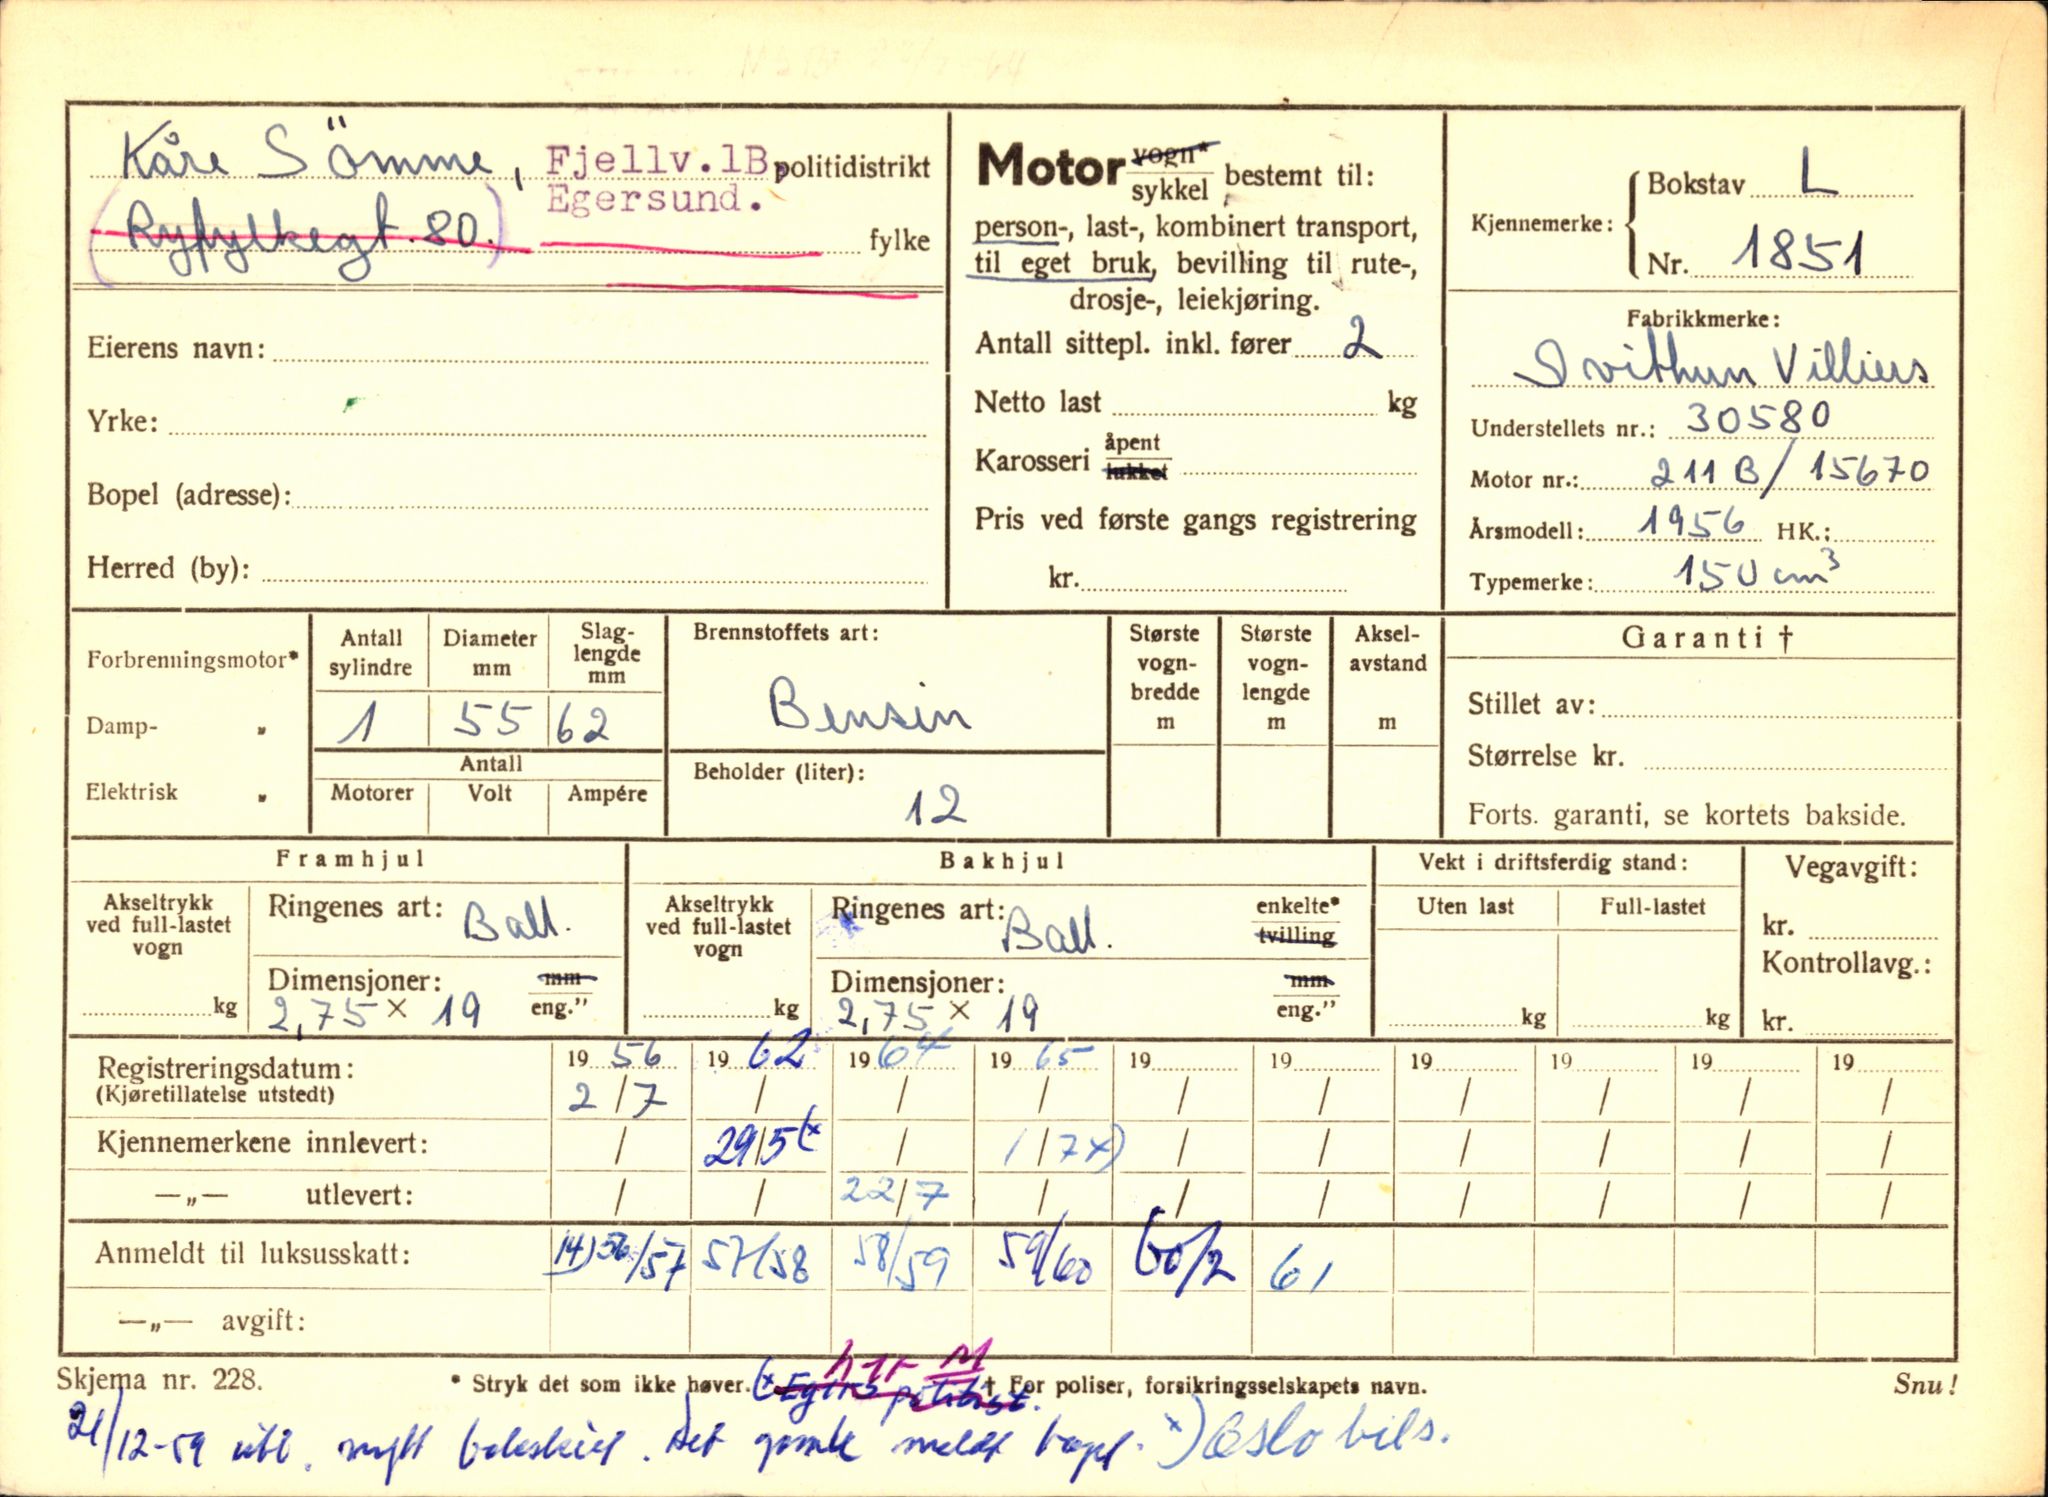 Kåre Sömme, Fjellv.1B, politidistrikt
Egersund.
(Ryfylkegt. 80.) fylke
Eierens navn:
Yrke:
Bopel (adresse):
Herred (by):
Motor vogn* sykkel bestemt til:
person-, last-, kombinert transport,
til eget bruk, bevilling til rute-,
drosje-, leiekjøring.
Antall sittepl. inkl. fører 2
Netto last kg
Karosseri åpent lukket
Pris ved første gangs registrering
kr.
Kjennemerke: Bokstav L
Nr. 1851
Fabrikkmerke:
Svithun Villiers
Understellets nr.: 30580
Motor nr.: 211 B/15670
Årsmodell: 1956 HK.:
Typemerke: 150 cm³
Forbrenningsmotor*
Damp- „
Elektrisk „
Antall sylindre 1
Diameter mm 55
Slag-lengde mm 62
Antall
Motorer Volt Ampére
Brennstoffets art:
Bensin
Beholder (liter):
12
Største vogn-bredde m
Største vogn-lengde m
Aksel-avstand m
Garanti †
Stillet av:
Størrelse kr.
Forts. garanti, se kortets bakside.
Framhjul
Akseltrykk ved full-lastet vogn
kg
Ringenes art: Ball.
Dimensjoner: mm
2,75 x 19 eng."
Bakhjul
Akseltrykk ved full-lastet vogn
kg
Ringenes art: Ball. enkelte* tvilling
Dimensjoner: mm
2,75 x 19 eng."
Vekt i driftsferdig stand:
Uten last Full-lastet
kg kg
Vegavgift:
kr.
Kontrollavg.:
kr.
Registreringsdatum: 1956 1962 1964 1965 19 19 19 19 19 19
(Kjøretillatelse utstedt) 2/7 / / / / / / / / /
Kjennemerkene innlevert: / 29/5(x / 1/7 x) / / / / / /
—„— utlevert: / / 22/7 / / / / / / /
Anmeldt til luksusskatt: 14) 56/57 57/58 58/59 59/60 60/2 61
—„— avgift:
Skjema nr. 228. * Stryk det som ikke høver. (x † For poliser, forsikringsselskapets navn. Snu!
21/12-59 utl. nytt Det gamle meldt x) Oslo bils.